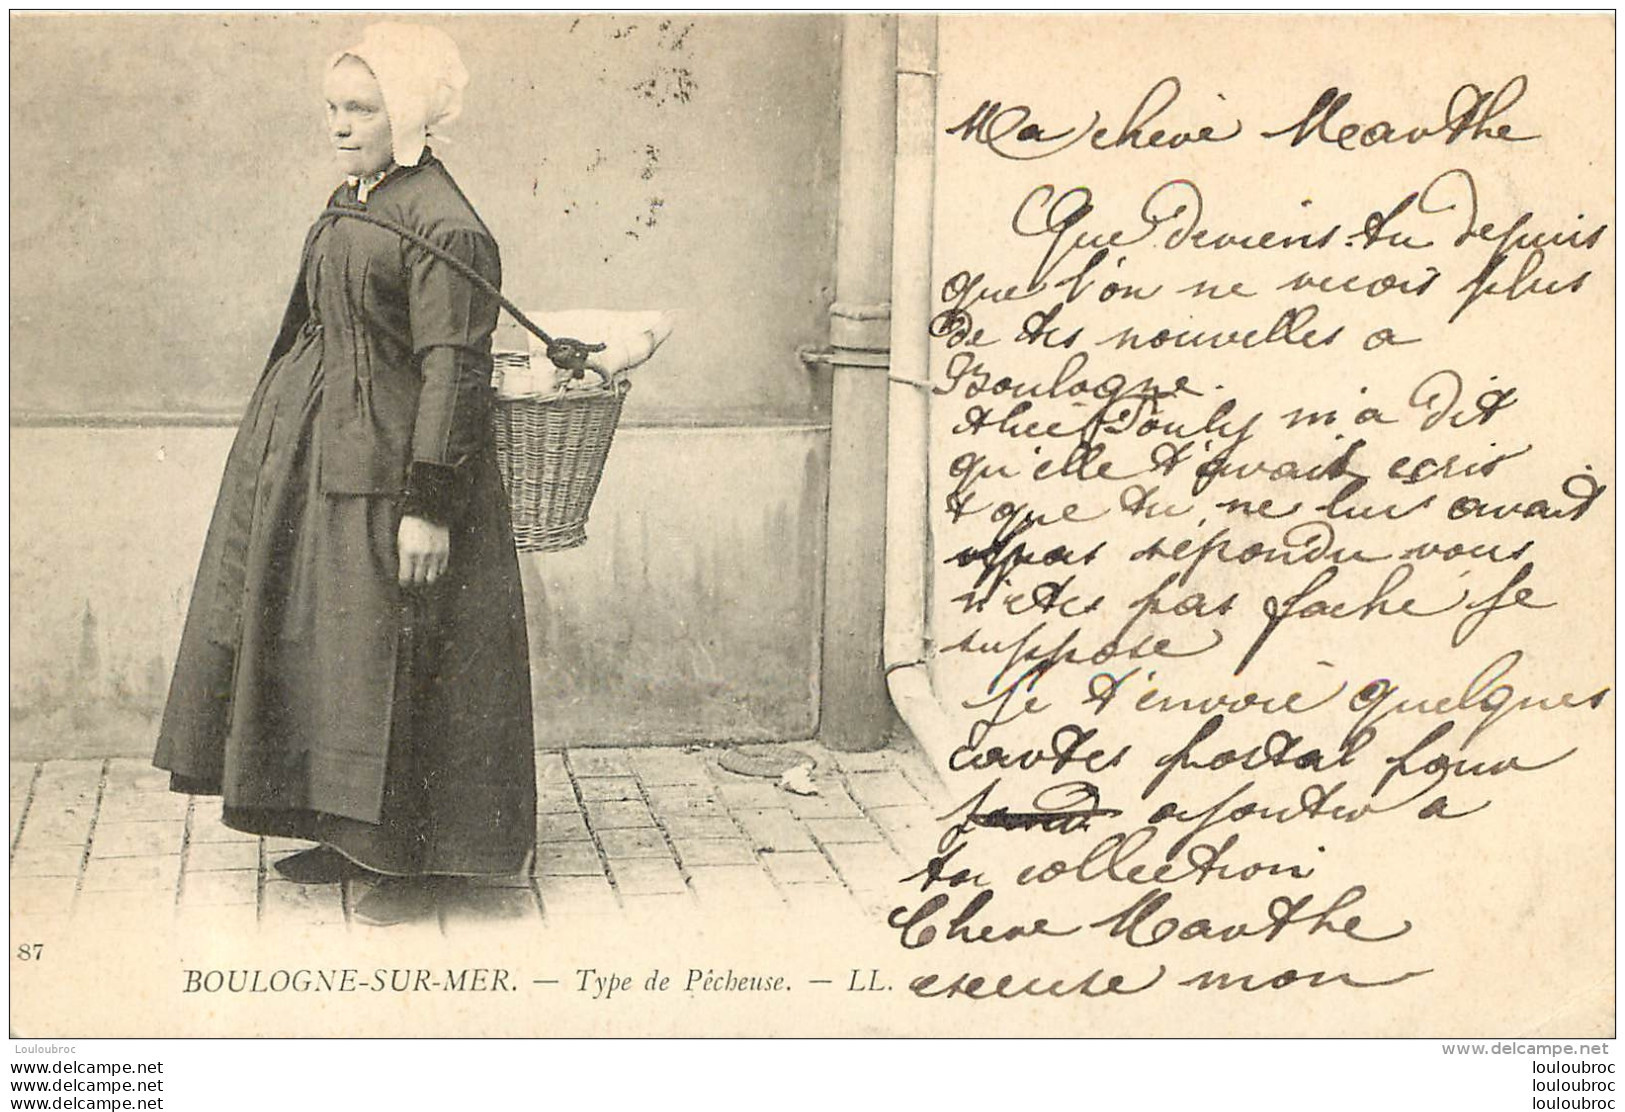 Ma cheré Marthe
Que deviens-tu depuis
que l'on ne recois plus
de tes nouvelles a
Boulogne.
Pouly m'a dit
qu'elle t'avait ecris
t que tu ne lui avait
pas repondu vous
n'etes pas faché Je
suppose
Je t'envoie quelques
cartes postal pour
ajouter a
ta collection
Chere Marthe
excuse mon
87
BOULOGNE-SUR-MER. — Type de Pêcheuse. — LL.
Louloubroc
www.delcampe.net
www.delcampe.net louloubroc
www.delcampe.net louloubroc
www.delcampe.net louloubroc